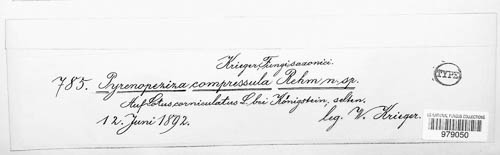 Krieger, Fungi saxonici.
785. Pyrenopeziza compressula Rehm n. sp.
TYPE
Auf Lotus corniculatus L. bei Königstein, selten.
12. Juni 1892. leg. W. Krieger.
US NATIONAL FUNGUS COLLECTIONS
979050